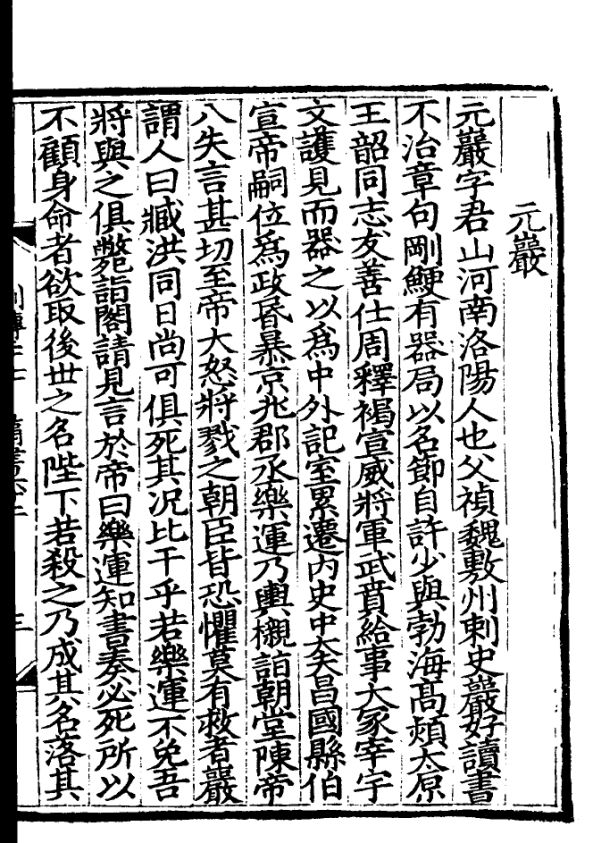 元巖
元巖字君山河南洛陽人也父禎魏敷州刺史巖好讀書
不治章句剛鯁有器局以名節自許少與勃海高熲太原
王韶同志友善仕周釋褐宣威將軍武賁給事大冢宰宇
文護見而器之以爲中外記室累遷內史中大夫昌國縣伯
宣帝嗣位爲政昏暴京兆郡丞樂運乃輿櫬詣朝堂陳帝
八失言甚切至帝大怒將戮之朝臣皆恐懼莫有救者巖
謂人曰臧洪同日尚可俱死其況比干乎若樂運不免吾
將與之俱斃詣閣請見言於帝曰樂運知書奏必死所以
不顧身命者欲取後世之名陛下若殺之乃成其名落其